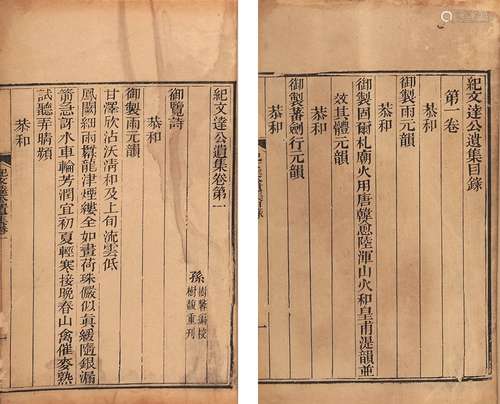 紀文達公遺集目錄
第一卷
恭和
御製雨元韻
恭和
御製固爾札廟火用唐韓愈陸渾山火和皇甫湜韻並
效其體元韻
恭和
御製蕃劍行元韻
恭和
紀文達公遺集卷第一
孫
樹馨編校
樹馥重刊
御覽詩
恭和
御製雨元韻
甘澤欣沾沃清和及上旬流雲低
鳳闕細雨羃龍津煙縷全如畫荷珠儼似眞緩隨銀漏
箭急訝水車輪芳潤宜初夏輕寒接晚春山禽催麥熟
試聽弄晴頻
恭和